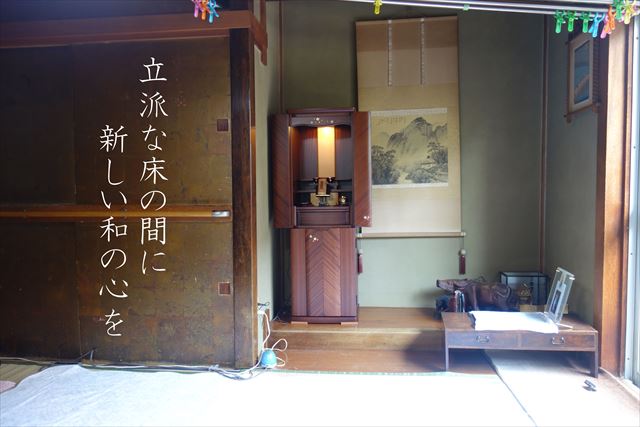 立派な床の間に
新しい和の心を